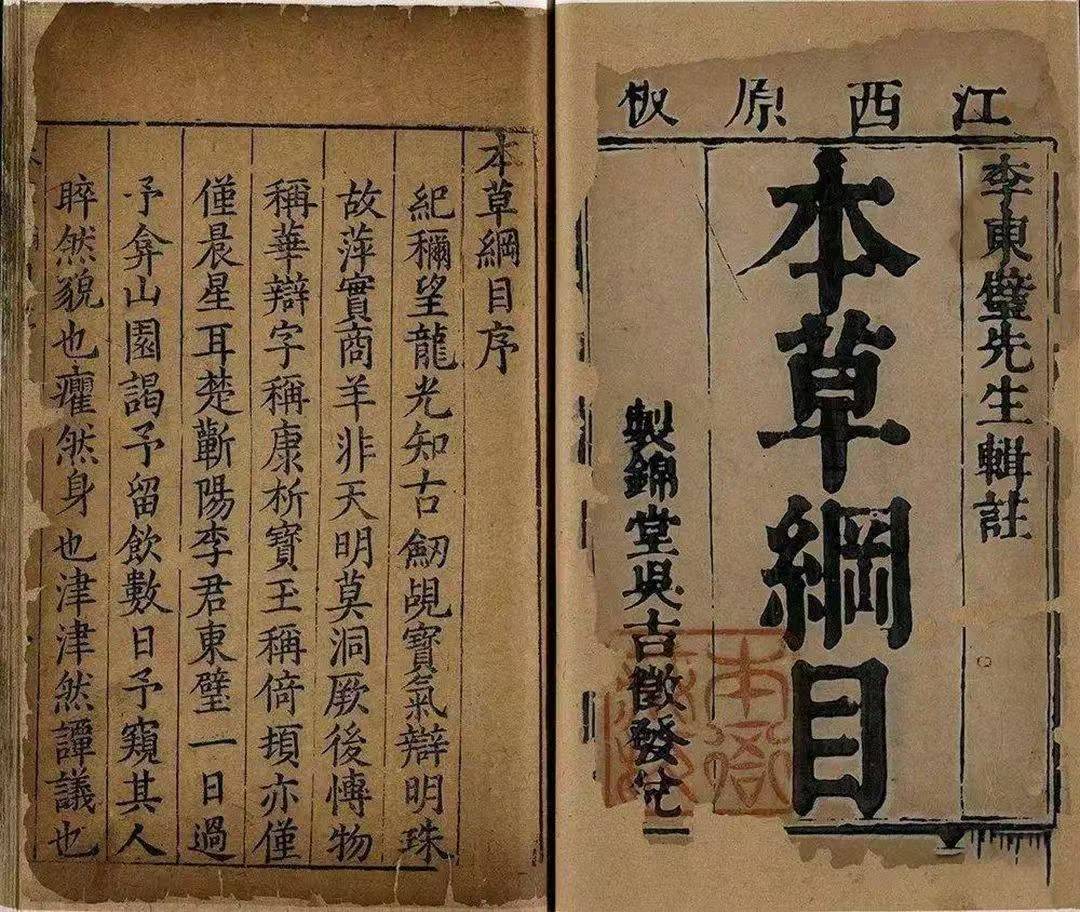 江西原板
李東璧先生輯註
本草綱目
製錦堂吳吉徵發兌
本草綱目序
紀稱望龍光知古劒覘寶氣辯明珠
故萍實商羊非天明莫洞厥後慱物
稱華辯字稱康析寶玉稱倚頓亦僅
僅晨星耳楚蘄陽李君東璧一日過
予弇山園謁予留飲數日予窺其人
睟然貌也癯然身也津津然譚議也